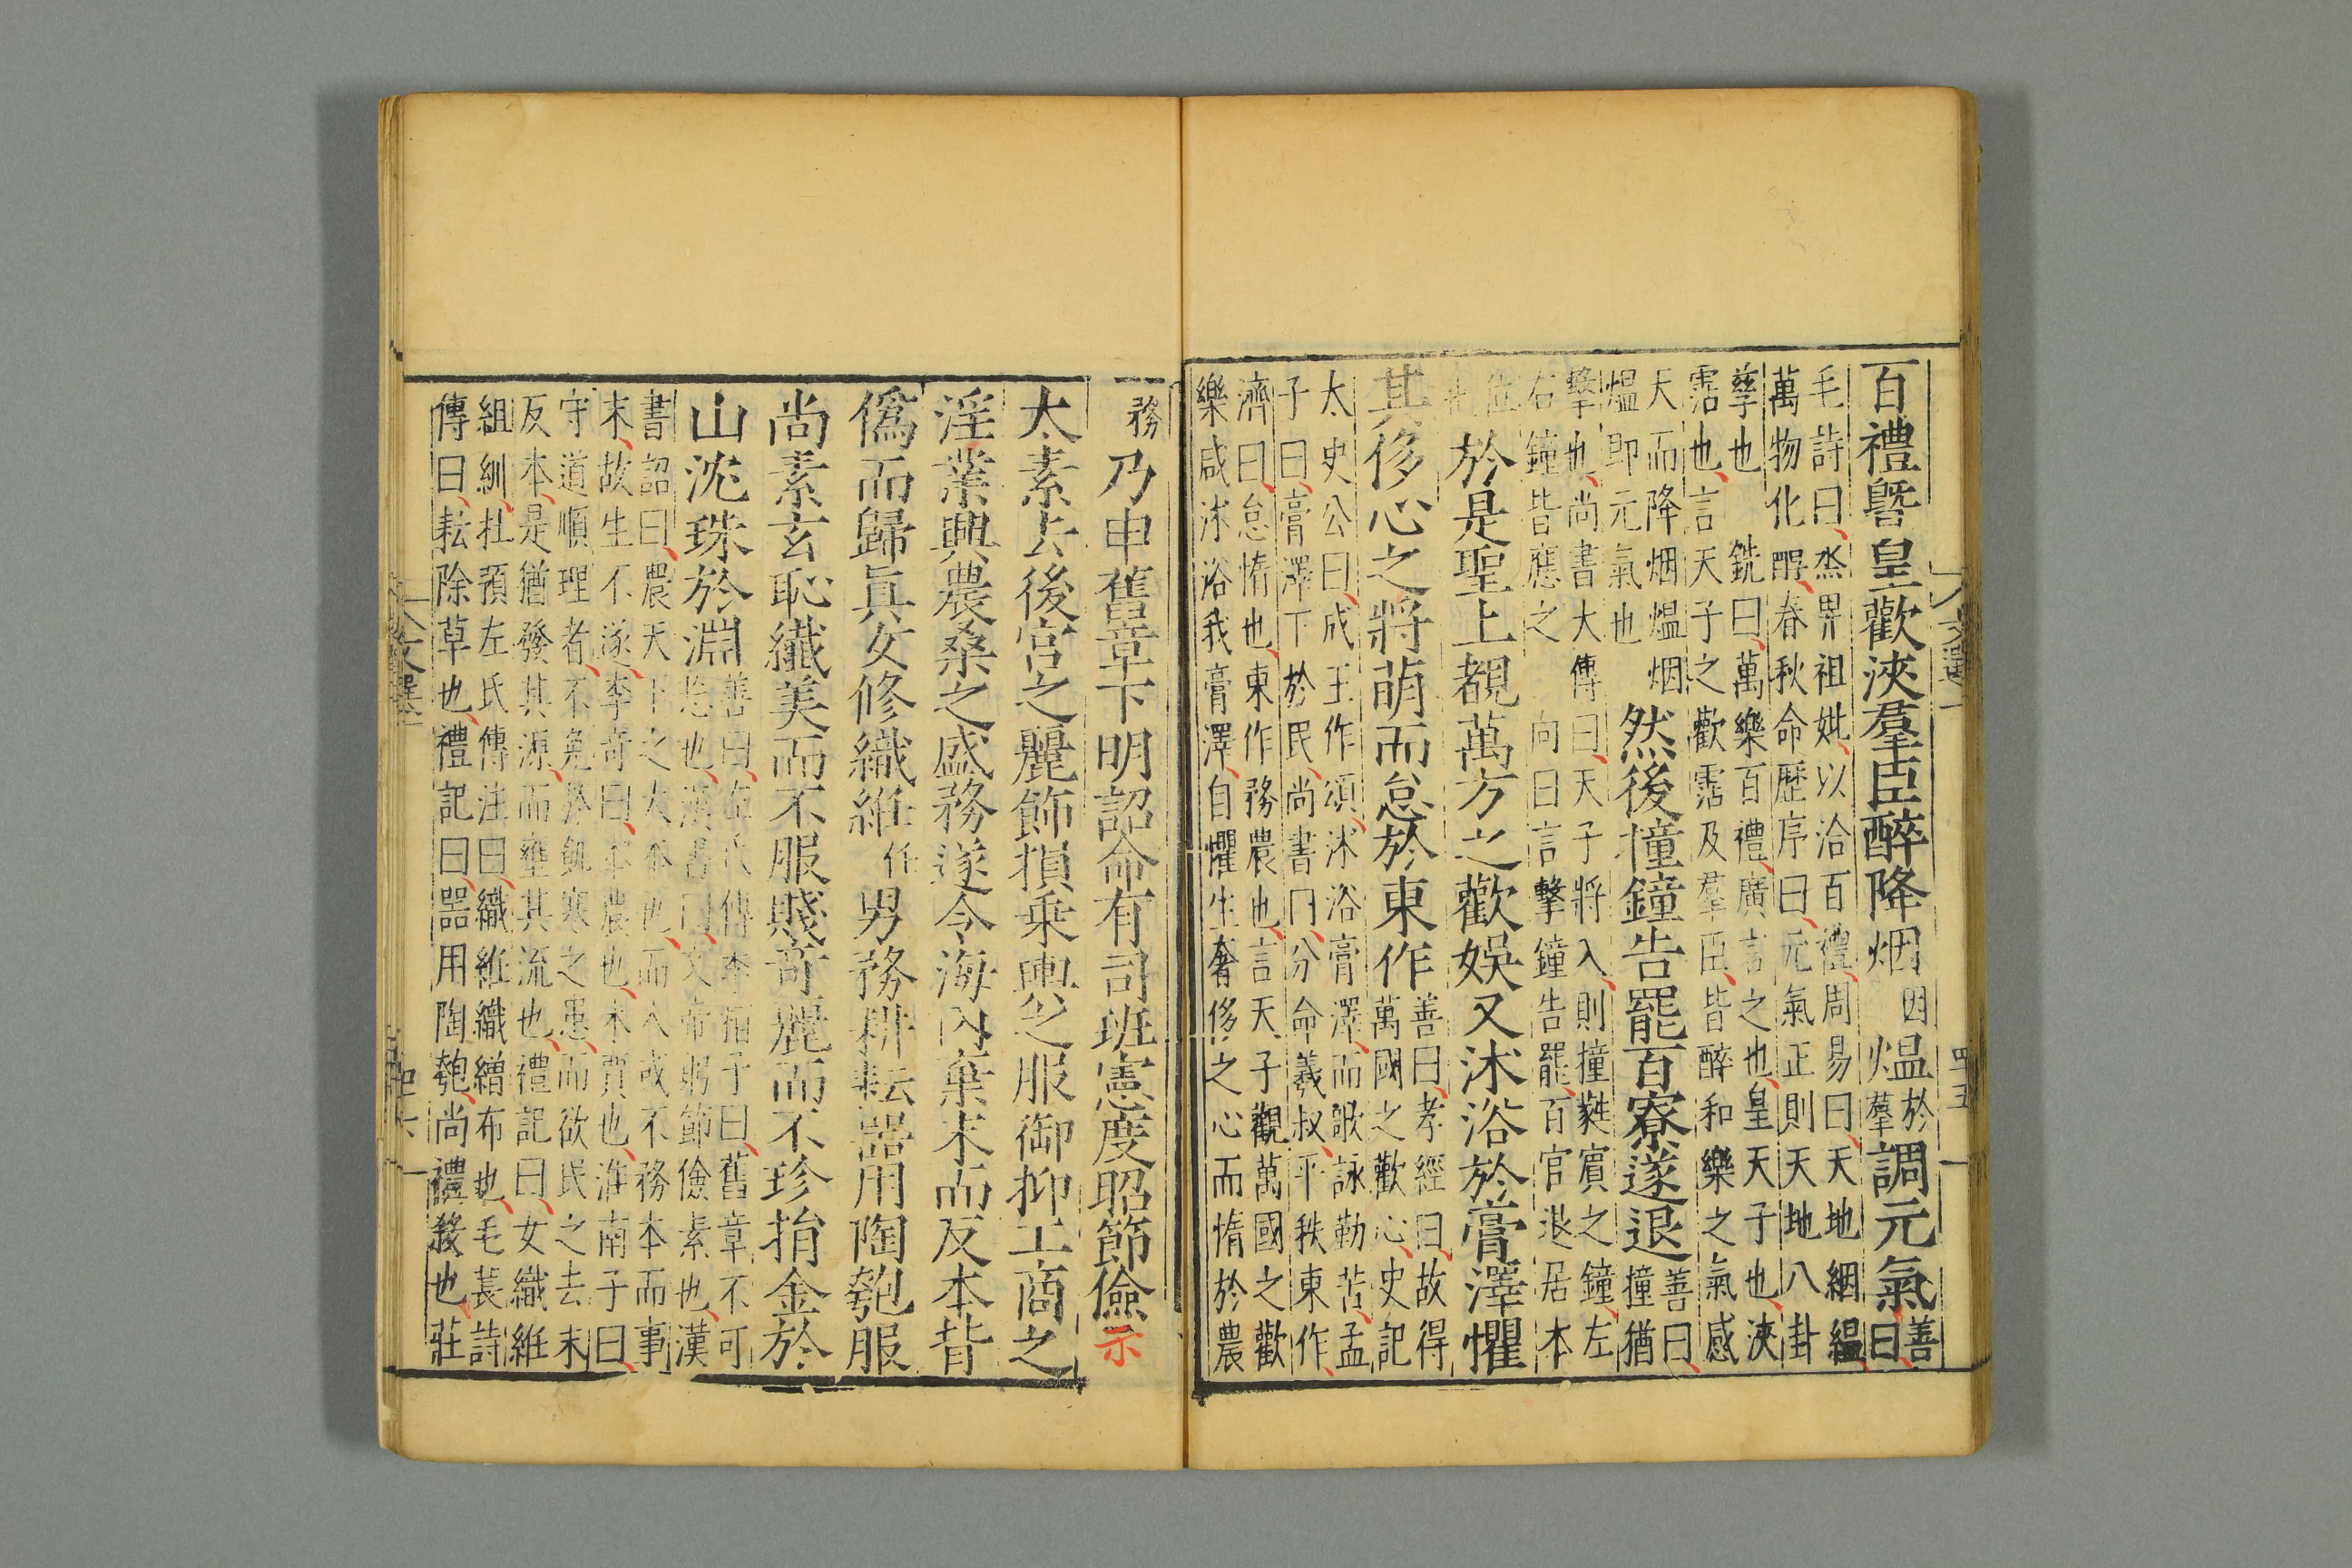 百禮曁皇歡浹羣臣醉降烟因熅於羣調元氣善曰
毛詩曰烝畀祖妣以洽百禮周易曰天地絪縕
萬物化醇春秋命歷序曰元氣正則天地八卦
孳也銑曰萬樂百禮廣言之也皇天子也浹
霑也言天子之歡霑及羣臣皆醉和樂之氣感
天而降烟熅烟
熅即元氣也
然後撞鐘告罷百寮遂退善曰
撞猶
擊也尚書大傳曰天子將入則撞蕤賓之鐘左
右鐘皆應之 向曰言擊鐘告罷百官退居本
位
於是聖上覩萬方之歡娛又沐浴於膏澤懼
其侈心之將萌而怠於東作善曰孝經曰故得
萬國之歡心史記
太史公曰成王作頌沐浴膏澤而歌詠勤苦孟
子曰膏澤下於民尚書曰分命羲叔平秩東作
濟曰怠惰也東作務農也言天子觀萬國之歡
樂咸沐浴我膏澤自懼生奢侈之心而惰於農
務乃申舊章下明詔命有司班憲度昭節儉示
太素去後宮之麗飾損乗輿之服御抑工商之
淫業興農桑之盛務遂令海內棄末而反本背
僞而歸眞女修織紝任男務耕耘器用陶匏服
尚素玄恥纖美而不服賤奇麗而不珍捐金於
山沈珠於淵善曰左氏傳季桓子曰舊章不可
忘也漢書曰文帝躬節儉素也漢
書詔曰農天下之大本也而人或不務本而事
末故生不遂李奇曰本農也末賈也淮南子曰
守道順理者不免於飢寒之患而欲民之去末
反本是猶發其源而壅其流也禮記曰女織紝
組紃杜預左氏傳注曰織紝織繒布也毛萇詩
傳曰耘除草也禮記曰器用陶匏尚禮然也莊
文選一
四五
文選一
四六